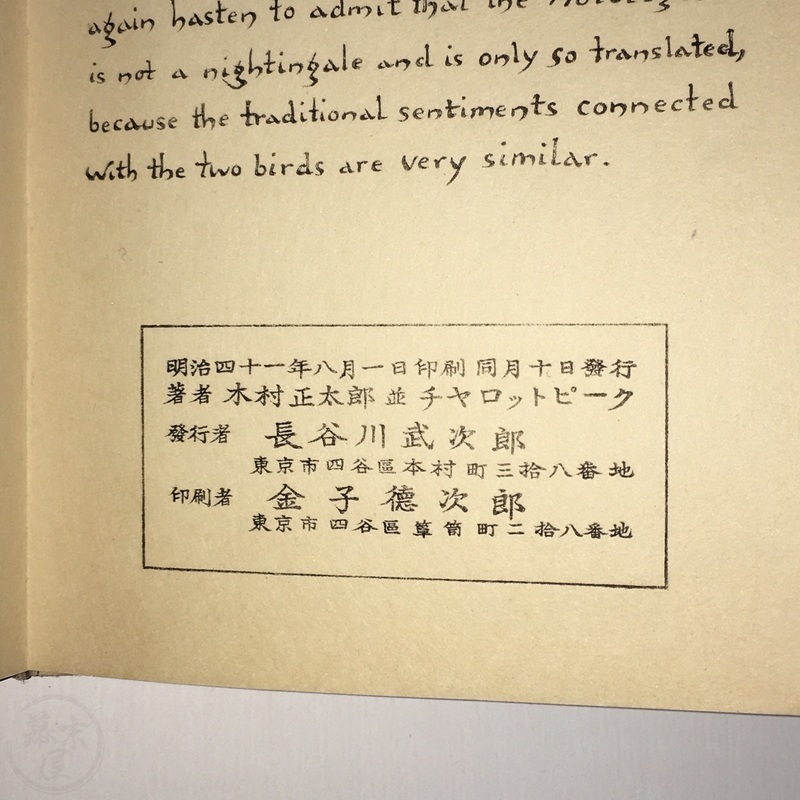 again hasten to admit that the
is not a nightingale and is only so translated,
because the traditional sentiments connected
with the two birds are very similar.
明治四十一年八月一日印刷 同月十日發行
著者 木村正太郎 並 チャロットピーク
發行者 長谷川武次郎
東京市四谷區本村町三拾八番地
印刷者 金子德次郎
東京市四谷區簞笥町二拾八番地
幕末屋